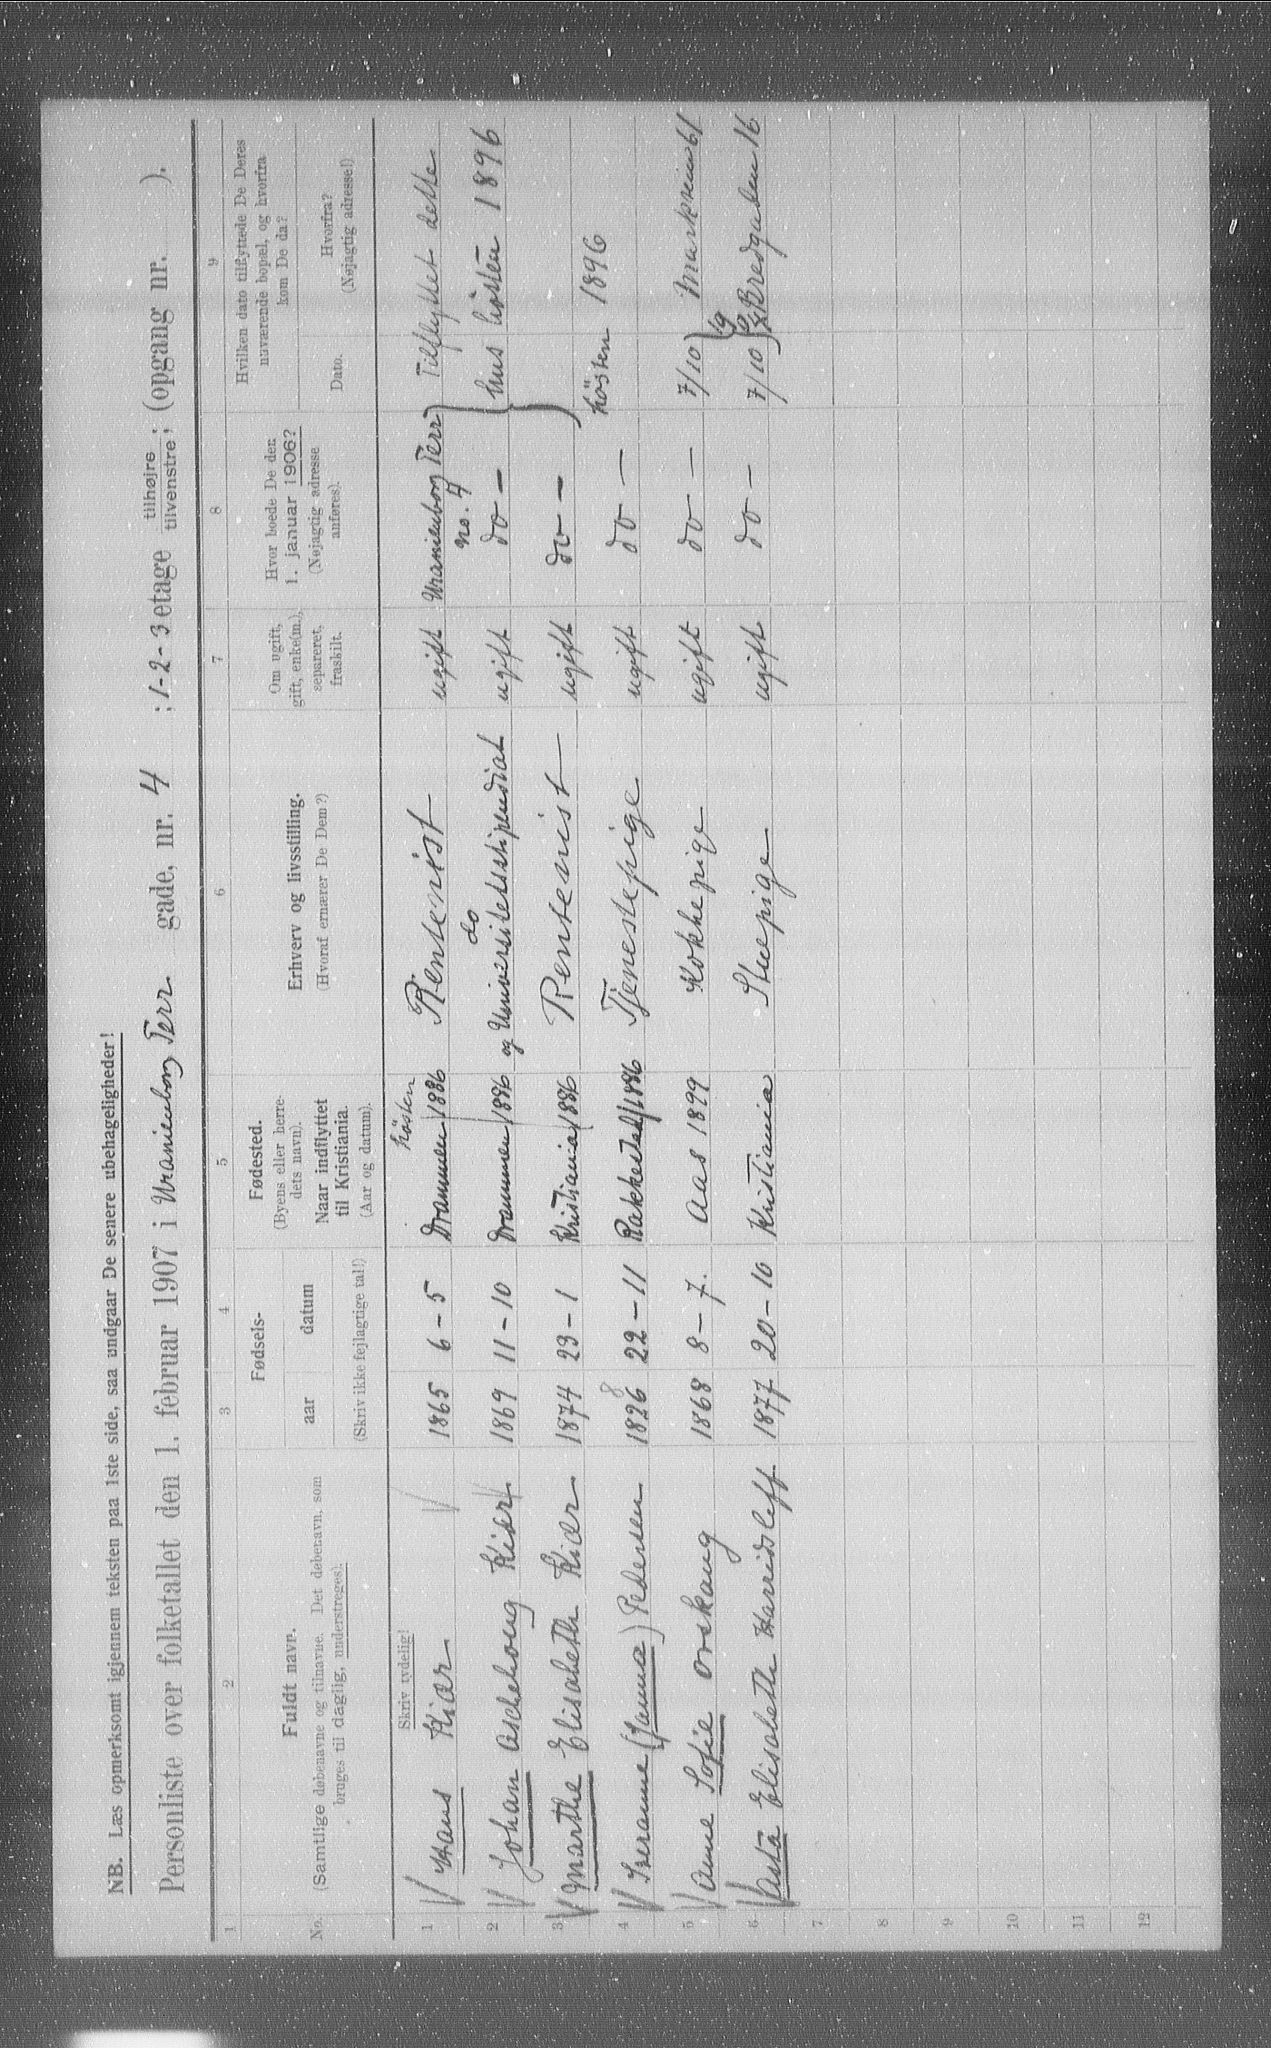 NB. Læs opmerksomt igjennem teksten paa 1ste side, saa undgaar De senere ubehageligheder!
Personliste over folketallet den 1. februar 1907 i Uranienborg Terr. gade, nr. 4 ; 1-2-3 etage tilhøjre tilvenstre ; (opgang nr. ).
1 2 3 4 5 6 7 8 9
No. Fuldt navn. (Samtlige døbenavne og tilnavne. Det døbenavn, som bruges til daglig, understreges). Fødsels- aar datum (Skriv ikke fejlagtige tal!) Fødested. (Byens eller herredets navn). Naar indflyttet til Kristiania. (Aar og datum). Erhverv og livsstilling. (Hvoraf ernærer De Dem?) Om ugift, gift, enke(m.), separeret, fraskilt. Hvor boede De den 1. januar 1906? (Nøjagtig adresse anføres). Hvilken dato tilflyttede De Deres nuværende bopæl, og hvorfra kom De da? Dato. Hvorfra? (Nøjagtig adresse!)
Skriv tydelig!
1 Hans Kiær 1865 6-5 Drammen høsten 1886 Rentenist ugift Uranienborg Terr no. 4 Tilflyttet dette
2 Johan Aschehoug Kiær 1869 11-10 Drammen 1886 do og Universitetsstipendiat ugift do - hus høsten 1896
3 Marthe Elisabeth Kiær 1874 23-1 Kristiania 1886 Rentenist ugift do -
4 (Janna) Pedersen 1826 8 22-11 Rakkestad 1886 Tjenestepige ugift do - høsten 1896
5 Anne Sofie Orskaug 1868 8-7. Aas 1899 Kokkepige ugift do - 7/10 Markveien 61
6 Asta Elisabeth 1877 20-10 Kristiania Stuepige ugift do - 7/10 Bredgaden 16
7
8
9
10
11
12